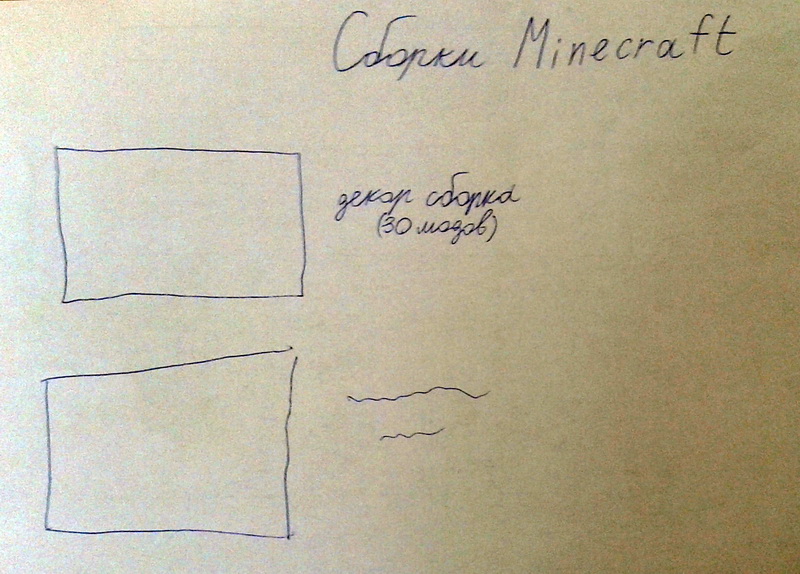 Сборки Minecraft
декор сборка
(30 модов)